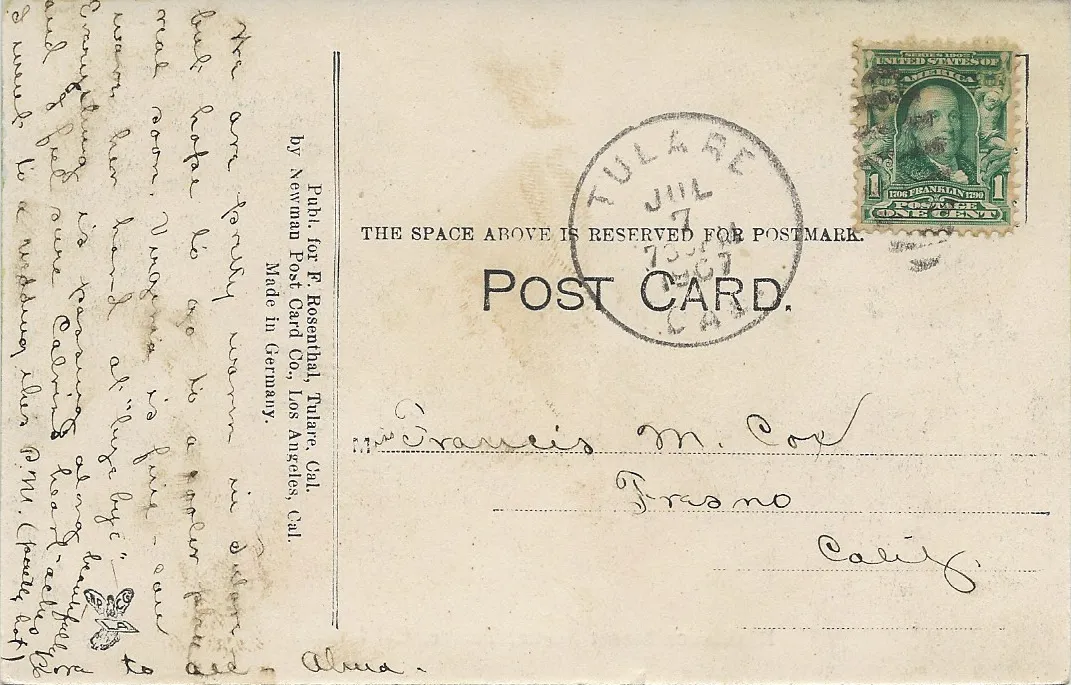 SERIES 1902
UNITED STATES OF
AMERICA
1 1706 FRANKLIN 1790 1
POSTAGE
ONE CENT
TULARE
JUL
7
1907
CAL
THE SPACE ABOVE IS RESERVED FOR POSTMARK.
POST CARD.
Miss Francis M. Cox
Fresno
Calif.
Publ. for F. Rosenthal, Tulare, Cal.
by Newman Post Card Co., Los Angeles, Cal.
Made in Germany.
We are pretty warm in Tulare
but hope to go to a cooler place
real soon. Virginia is fine - can
wave her hand at "bye bye" —
Everything is passing along beautifully
and I feel sure Calvin's heart-aches
I went to a wedding this P.M. (hot)
to all - Alma.